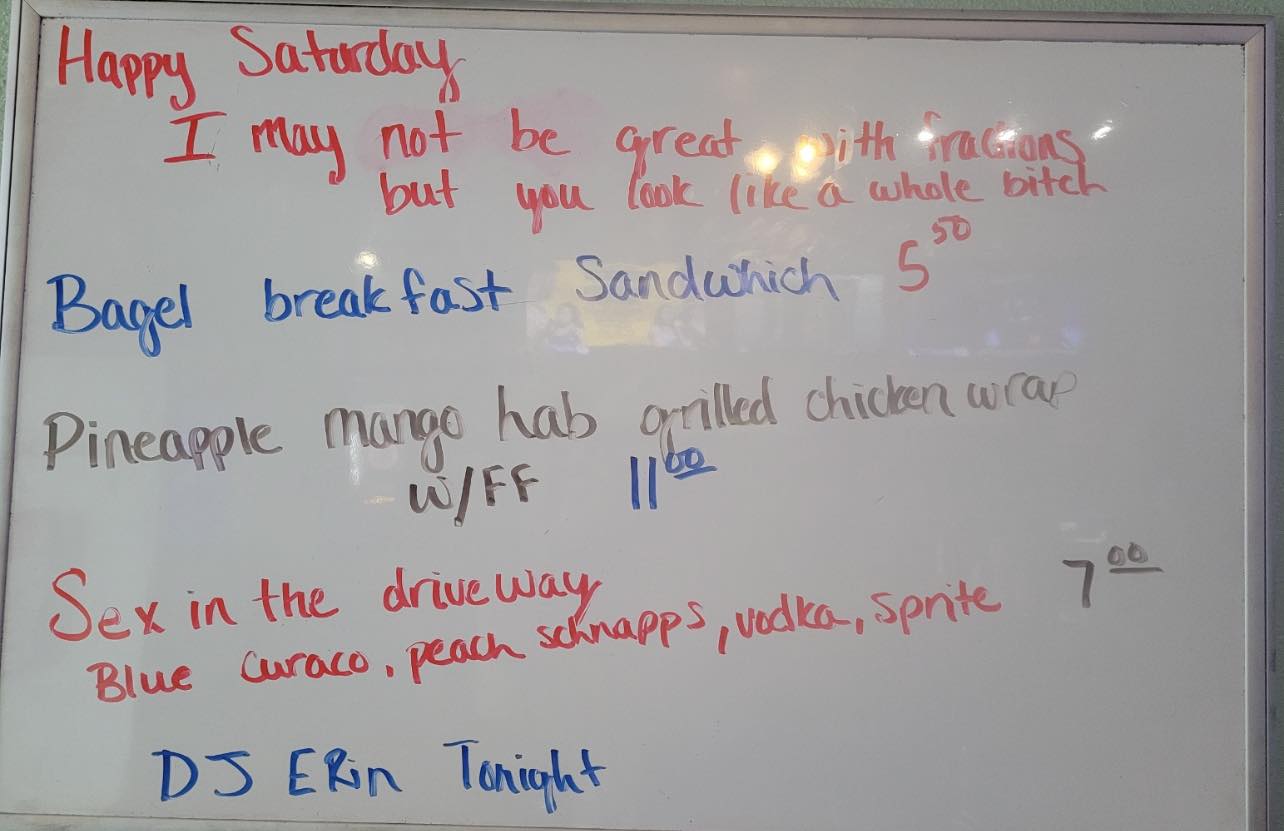 Happy Saturday
I may not be great with fractions
but you look like a whole bitch
Bagel breakfast Sandwhich 5 50
Pineapple mango hab grilled chicken wrap
W/FF 11 00
Sex in the driveway 7 00
Blue curaco, peach schnapps, vodka, sprite
DJ ERin Tonight